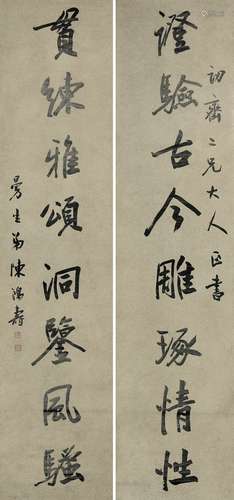 證驗古今雕琢情性
初齋二兄大人正書
貫練雅頌洞鑒風騷
曼生弟陳鴻壽